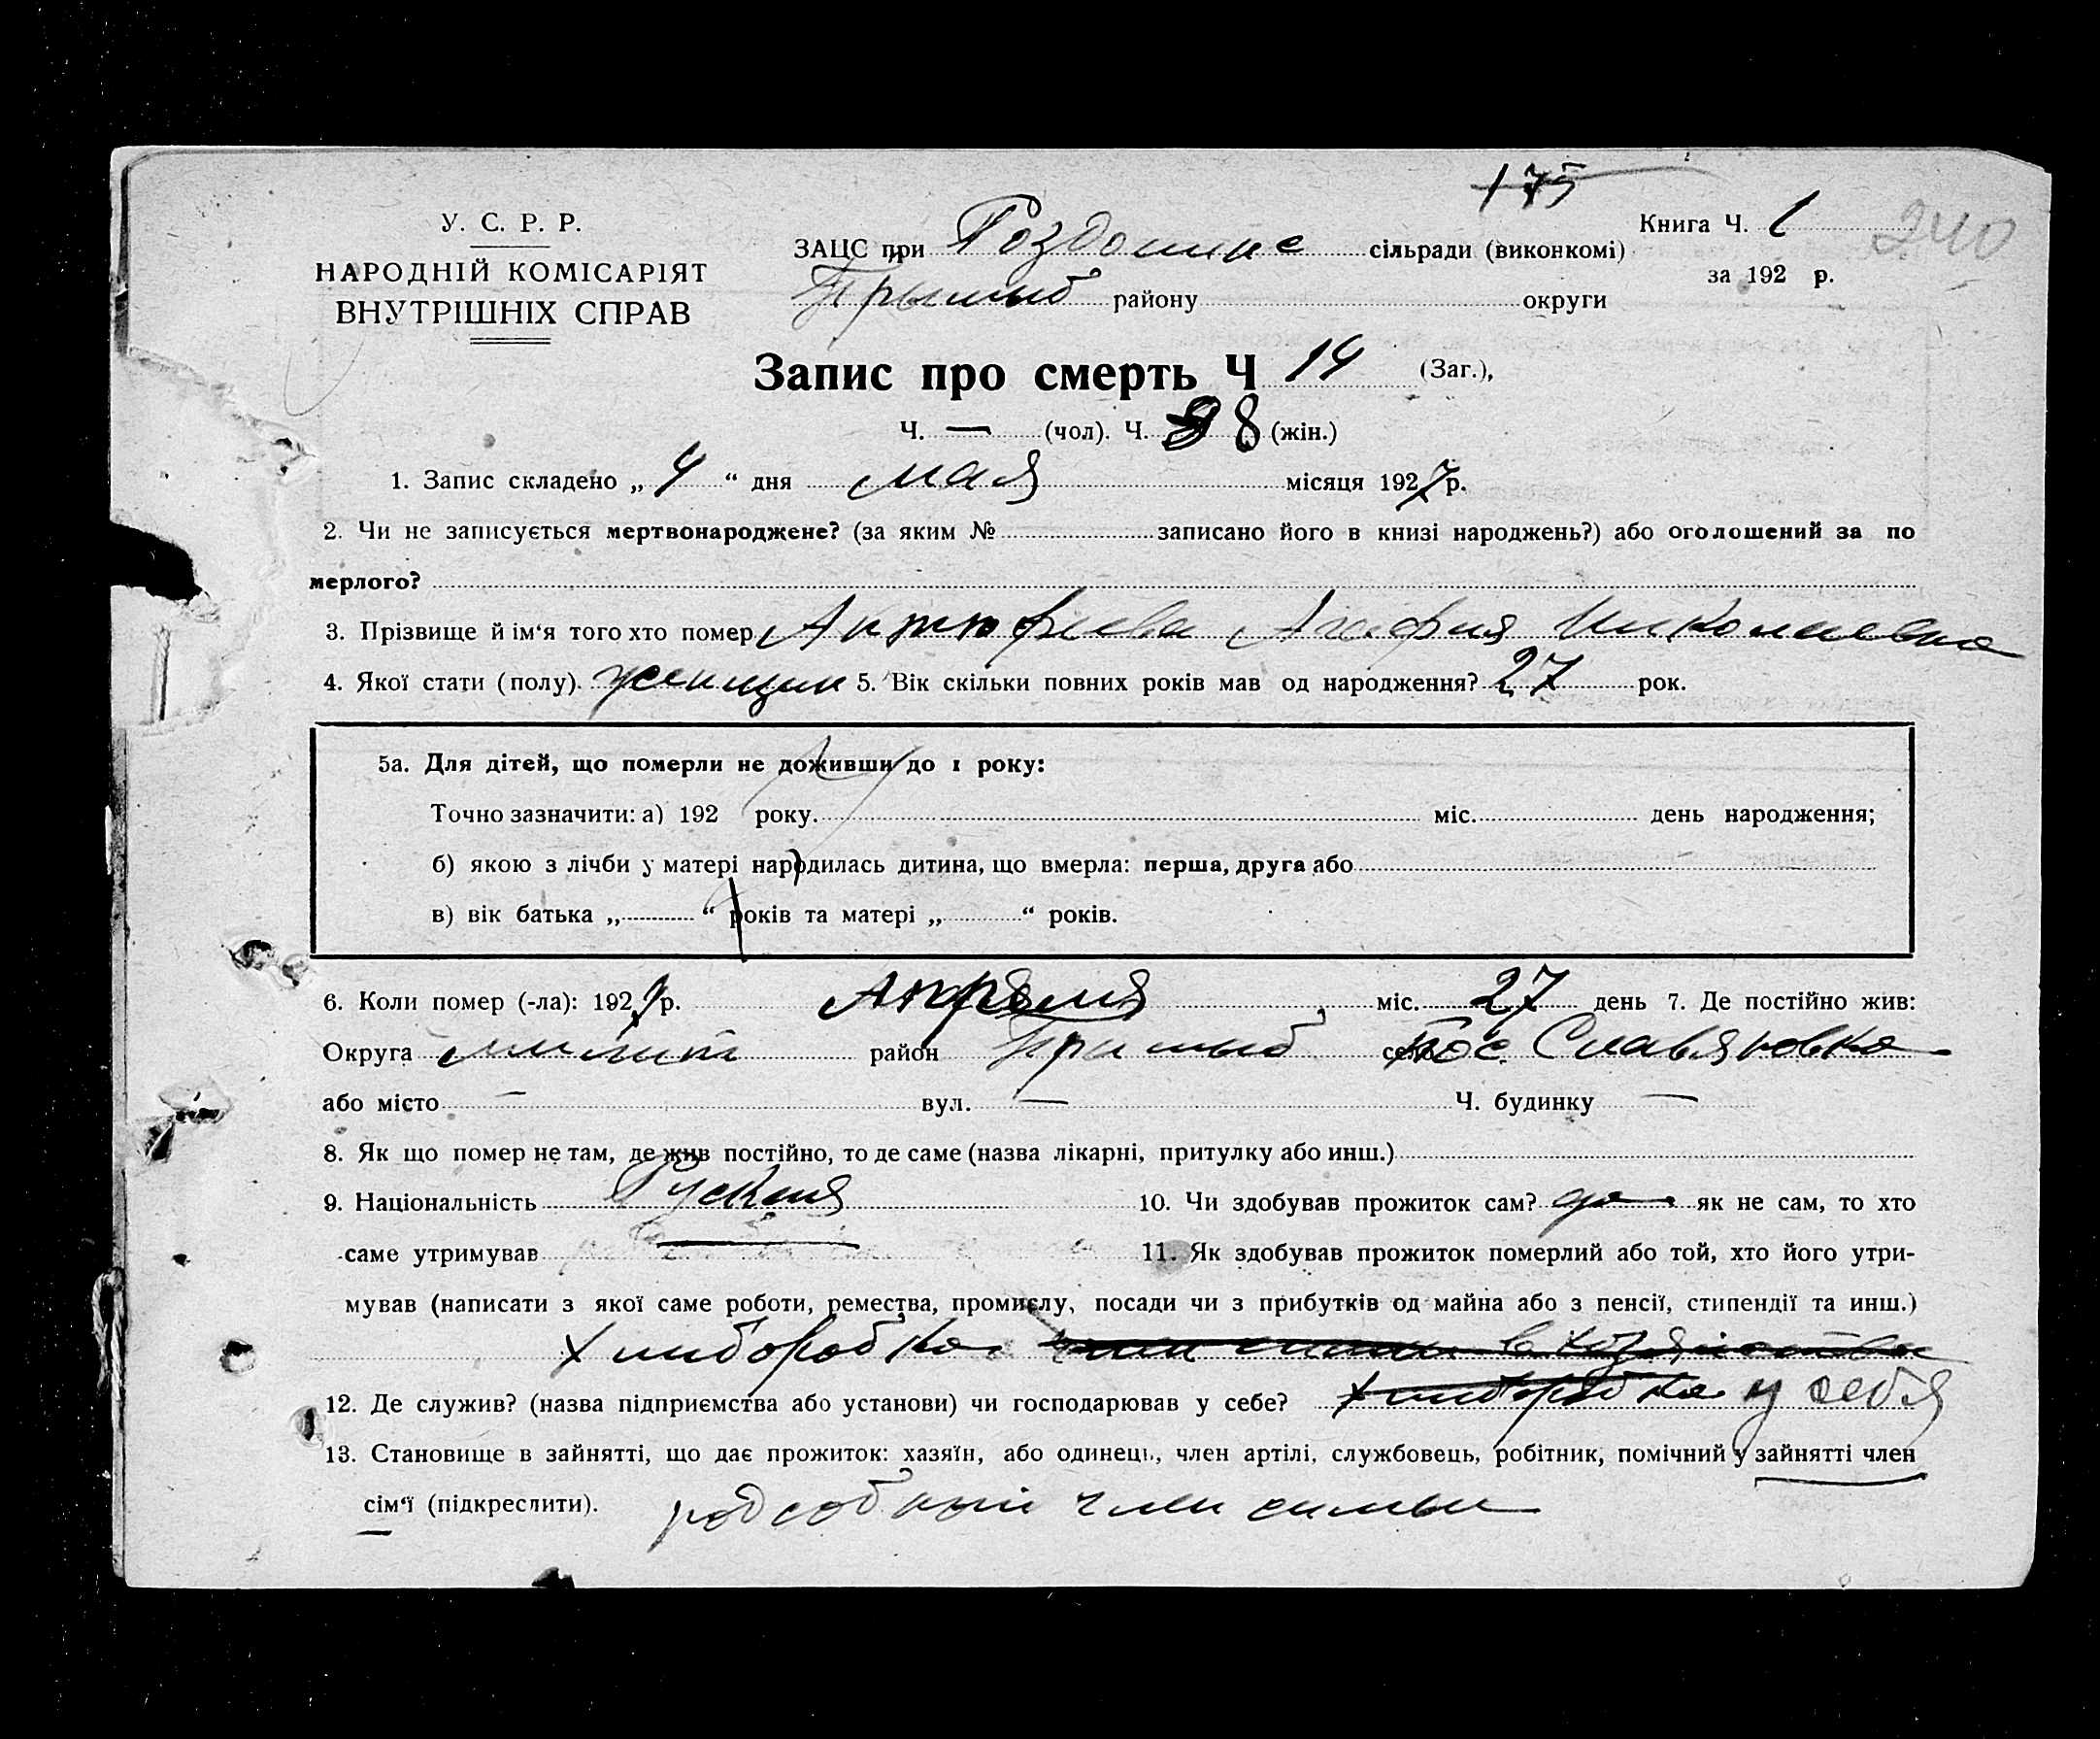 175
У. С. Р. Р.
НАРОДНІЙ КОМІСАРІЯТ
ВНУТРІШНІХ СПРАВ
ЗАЦС при сільради (виконкомі)
Пришиб району округи
Книга Ч. 1
240
за 192 р.
Запис про смерть Ч 14 (Заг.),
Ч. — (чол). Ч. 8 (жін.)
1. Запис складено „ 4 “ дня мая місяця 1927 р.
2. Чи не записується мертвонароджене? (за яким № записано його в книзі народжень?) або оголошений за по
мерлого?
3. Прізвище й ім‘я того хто помер Агафия Николаевна
4. Якої стати (полу). женщин 5. Вік скільки повних років мав од народження? 27 рок.
5а. Для дітей, що померли не доживши до 1 року:
Точно зазначити: а) 192 року. міс. день народження;
б) якою з лічби у матері народилась дитина, що вмерла: перша, друга або
в) вік батька „ “ років та матері „ “ років.
6. Коли помер (-ла): 1927 р. Апреля міс. 27 день 7. Де постійно жив:
Округа Мелит район Пришиб село Пос. Славяновка
або місто — вул. — Ч. будинку —
8. Як що помер не там, де жив постійно, то де саме (назва лікарні, притулку або инш.)
9. Національність Руская 10. Чи здобував прожиток сам? да як не сам, то хто
саме утримував — 11. Як здобував прожиток померлий або той, хто його утри-
мував (написати з якої саме роботи, ремества, промислу, посади чи з прибутків од майна або з пенсії, стипендії та инш.)
хлиборобка
12. Де служив? (назва підприємства або установи) чи господарював у себе? хлиборобка у себя
13. Становище в зайнятті, що дає прожиток: хазяїн, або одинець, член артілі, службовець, робітник, помічний у зайнятті член
сім‘ї (підкреслити). подсобный член симьи